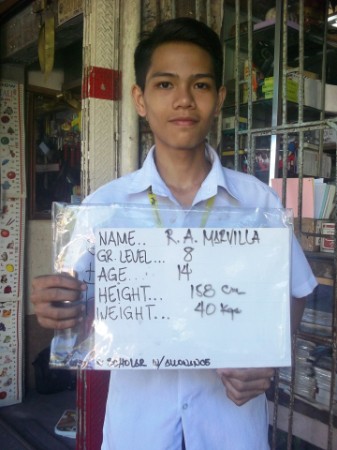 NAME.. R. A. MARVILLA
GR. LEVEL... 8
AGE..... 14
HEIGHT... 158 cm
WEIGHT... 40 Kgs
SCHOLAR W/